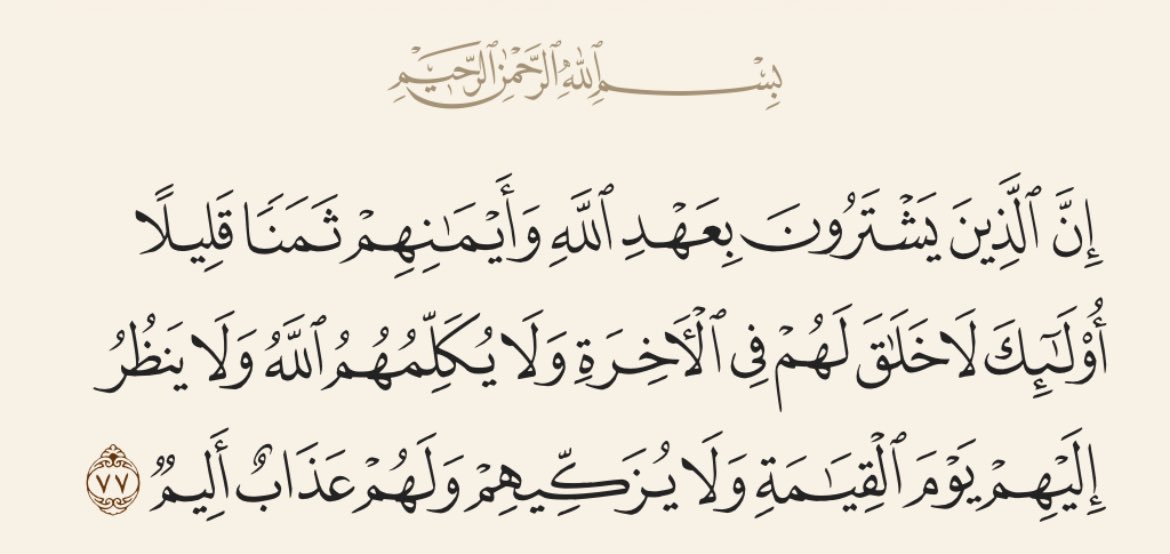 بِسْمِ ٱللَّهِ ٱلرَّحْمَٰنِ ٱلرَّحِيمِ
إِنَّ ٱلَّذِينَ يَشْتَرُونَ بِعَهْدِ ٱللَّهِ وَأَيْمَـٰنِهِمْ ثَمَنًا قَلِيلًا
أُو۟لَـٰٓئِكَ لَا خَلَـٰقَ لَهُمْ فِى ٱلْـَٔاخِرَةِ وَلَا يُكَلِّمُهُمُ ٱللَّهُ وَلَا يَنظُرُ
إِلَيْهِمْ يَوْمَ ٱلْقِيَـٰمَةِ وَلَا يُزَكِّيهِمْ وَلَهُمْ عَذَابٌ أَلِيمٌ ٧٧